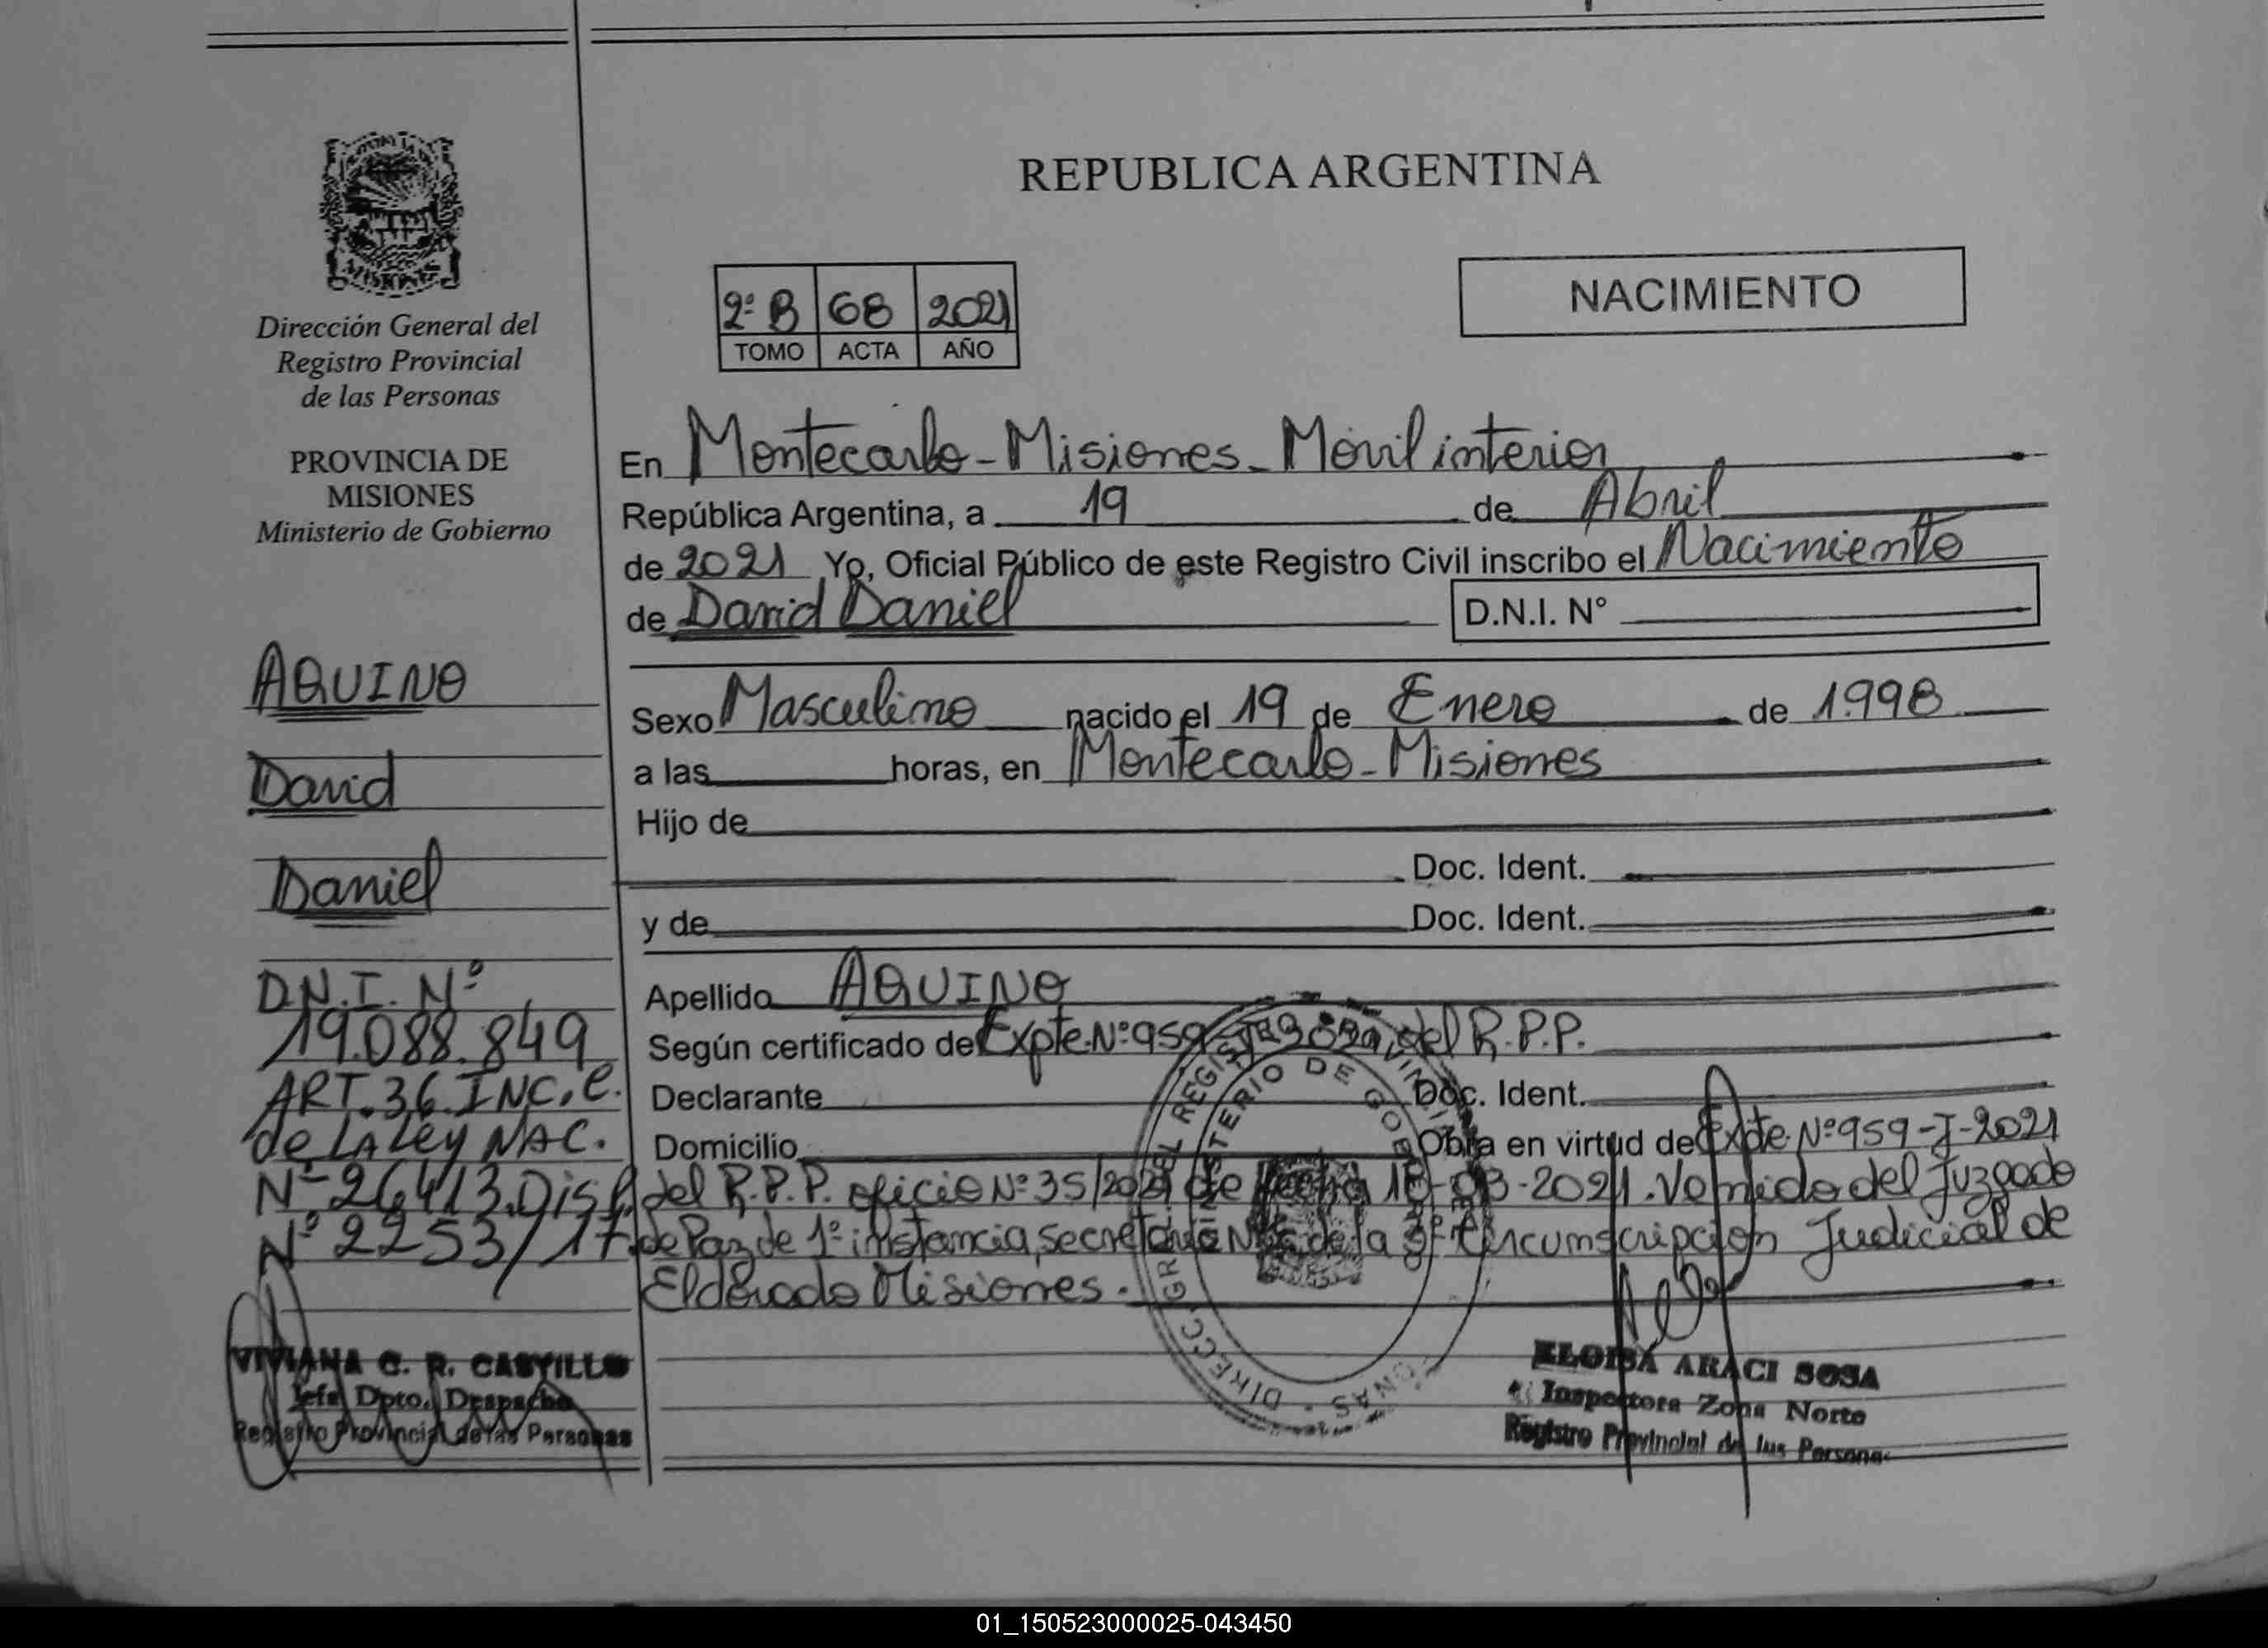 REPUBLICA ARGENTINA
2º B 68 2021
TOMO ACTA AÑO
NACIMIENTO
Dirección General del
Registro Provincial
de las Personas
PROVINCIA DE
MISIONES
Ministerio de Gobierno
AQUINO
David
Daniel
D.N.I. Nº
19.088.849
ART.36.INC.e.
de LA Ley NAC.
Nº 26.413.Disp.
Nº 2253/17.
VIVIANA C. R. CASTILLO
Jefa Dpto. Despacho
Registro Provincial de las Personas
En Montecarlo-Misiones-Móvil interior
República Argentina, a 19 de Abril
de 2021 Yo, Oficial Público de este Registro Civil inscribo el Nacimiento
de David Daniel D.N.I. Nº
Sexo Masculino nacido el 19 de Enero de 1.998
a las horas, en Montecarlo-Misiones
Hijo de
Doc. Ident.
y de Doc. Ident.
Apellido AQUINO
Según certificado de Expte.Nº959 del R.P.P.
Declarante Doc. Ident.
Domicilio Obra en virtud de Expte.Nº959-J-2021
del R.P.P. oficio Nº35/2021 de fecha 18-03-2021.Venido del Juzgado
de Paz de 1º instancia, secretaria de la 3º Circunscripcion Judicial de
Eldorado Misiones.
ELOISA ARACI SOSA
Inspectora Zona Norte
Registro Provincial de las Personas
01_150523000025-043450